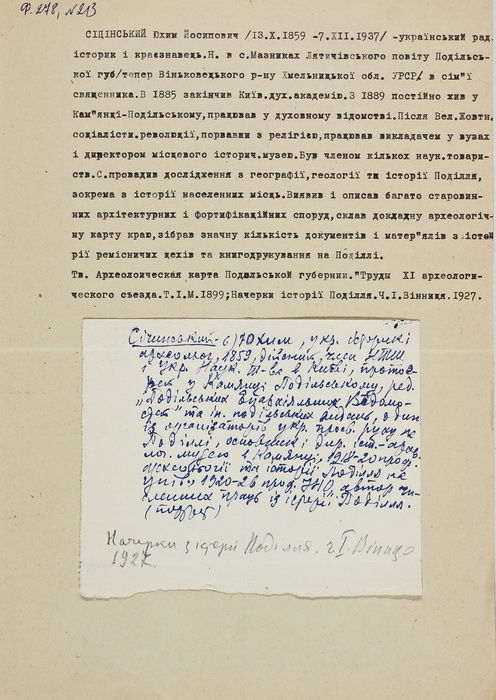 Ф. 278, №213
СІЦІНСЬКИЙ Юхим Йосипович /13.X.1859 -7.XII.1937/ -український рад.
історик і краєзнавець.Н. в с.Мазниках Лятичівського повіту Подільсь-
кої губ/тепер Віньковецького р-ну Хмельницької обл. УРСР/ в сім"ї
священника.В 1885 закінчив Київ.дух.академію.З 1889 постійно жив у
Кам"янці-Подільському,працював у духовному відомстві.Після Вел.Жовтн.
соціалісти.революції,порвавши з релігією,працював викладачем у вузах
і директором місцевого історич.музею.Був членом кількох наук.товари-
ств.С.провадив дослідження з географії,геології та історії Поділля,
зокрема з історії населенних місць.Виявив і описав багато старовин-
них архітектурних і фортифікаційних споруд,склав докладну археологіч-
ну карту краю,зібрав значну кількість документів і матер"ялів з істо
рії ремісничих цехів та книгодрукування на Поділлі.
Тв. Археолоическая карта Подольськой губернии."Труды XI археологи-
ческого съезда.Т.I.М.1899;Начерки історії Поділля.Ч.I.Вінниця.1927.
Січинський Юхим, укр. історик і
археолог, 1859, дійсний член НТШ
і Укр. Наук. Т-ва в Києві, протоє-
рей у Камянці Подільському, ред.
"Подільських Епархіяльних Ведомо-
стей" та ін. подільських видань, один
із організаторів укр. просв. руху на
Поділлі, основник і дир. іст.-архео-
лог. музею в Камянці, 1918-20 проф.
археології та історії Поділля на
унів., 1920-26 проф. ІНО, автор чи-
сленних праць із історії Поділля.
Начерки з історії Поділля. ч. I. Вінниця
1927.